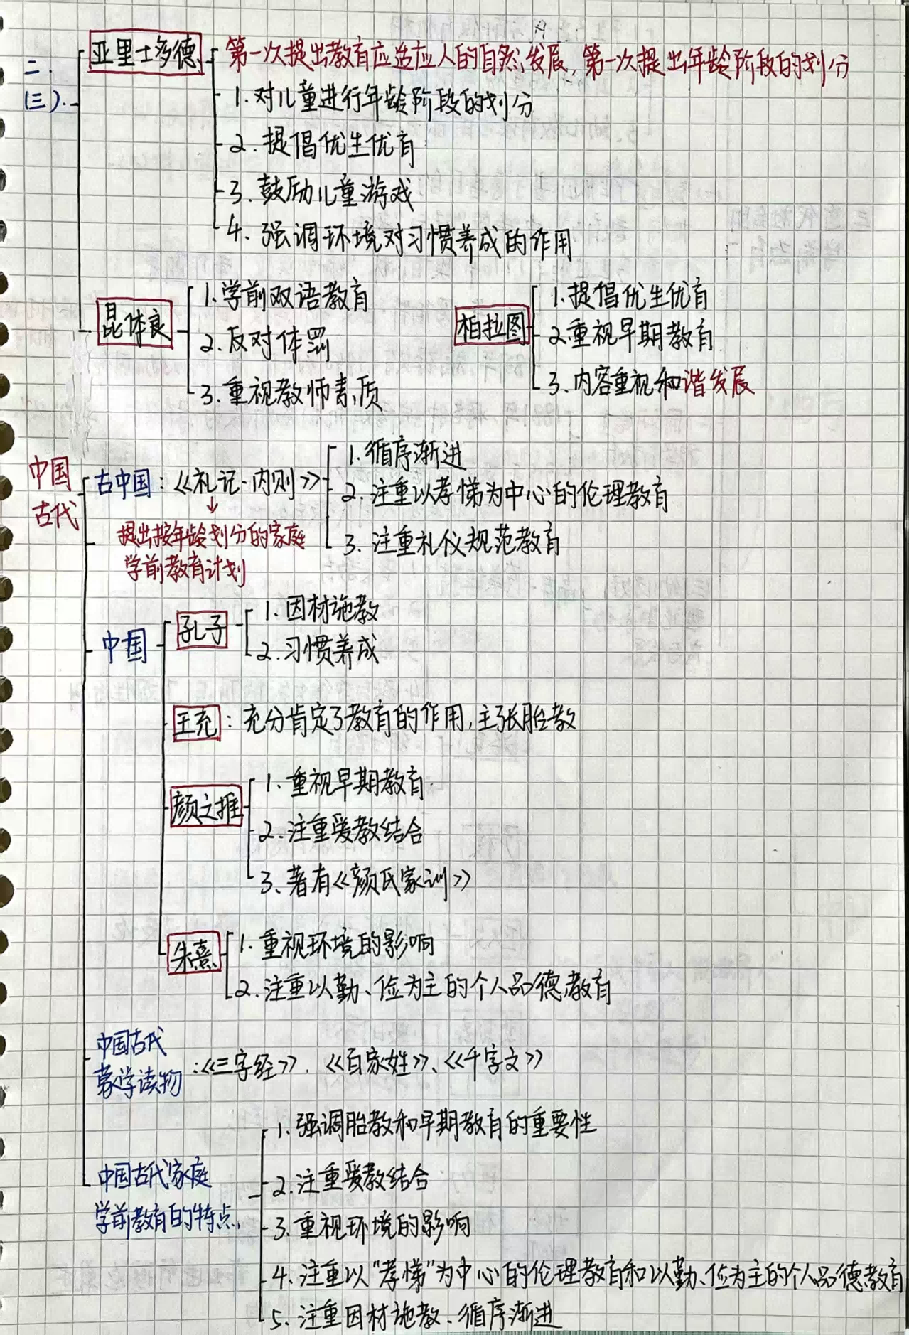 二.
(三).
亚里士多德
第一次提出教育应适应人的自然发展,第一次提出年龄阶段的划分
1.对儿童进行年龄阶段的划分
2.提倡优生优育
3.鼓励儿童游戏
4.强调环境对习惯养成的作用
昆体良
1.学前双语教育
2.反对体罚
3.重视教师素质
柏拉图
1.提倡优生优育
2.重视早期教育
3.内容重视和谐发展
中国
古代
古中国:《礼记·内则》
↓
提出按年龄划分的家庭
学前教育计划
1.循序渐进
2.注重以孝悌为中心的伦理教育
3.注重礼仪规范教育
中国
孔子
1.因材施教
2.习惯养成
王充:充分肯定了教育的作用,主张胎教
颜之推
1.重视早期教育
2.注重爱教结合
3.著有《颜氏家训》
朱熹
1.重视环境的影响
2.注重以勤、俭为主的个人品德教育
中国古代
蒙学读物:《三字经》、《百家姓》、《千字文》
中国古代家庭
学前教育的特点
1.强调胎教和早期教育的重要性
2.注重爱教结合
3.重视环境的影响
4.注重以"孝悌"为中心的伦理教育和以勤、俭为主的个人品德教育
5.注重因材施教、循序渐进